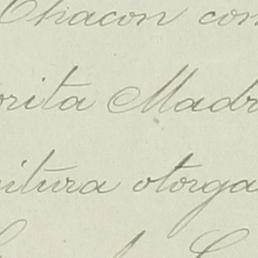 Chacon con
orita Madr
itura otorga